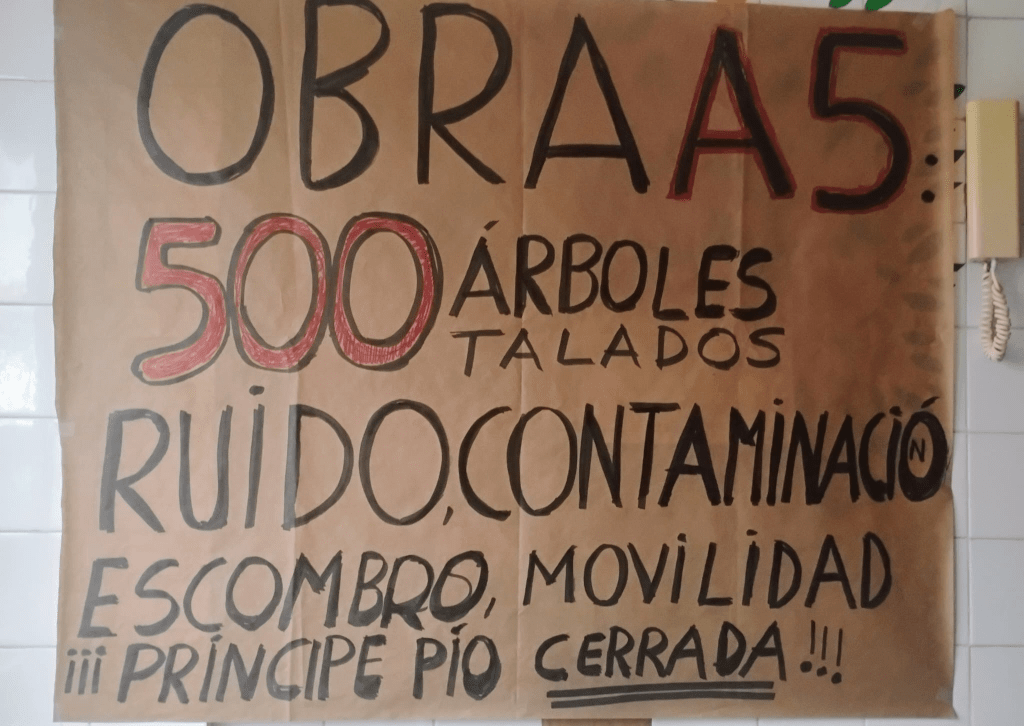 OBRA A5:
500 ÁRBOLES
TALADOS
RUIDO, CONTAMINACIÓN
ESCOMBRO, MOVILIDAD
¡¡¡PRÍNCIPE PÍO CERRADA!!!